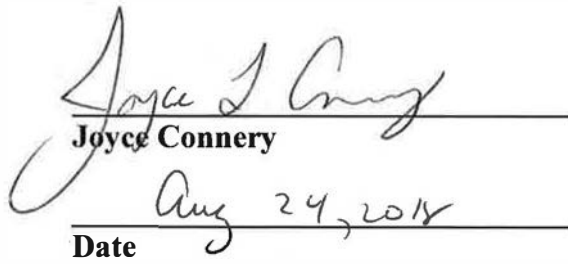 Joyce L Connery
Joyce Connery
Aug 24, 2018
Date